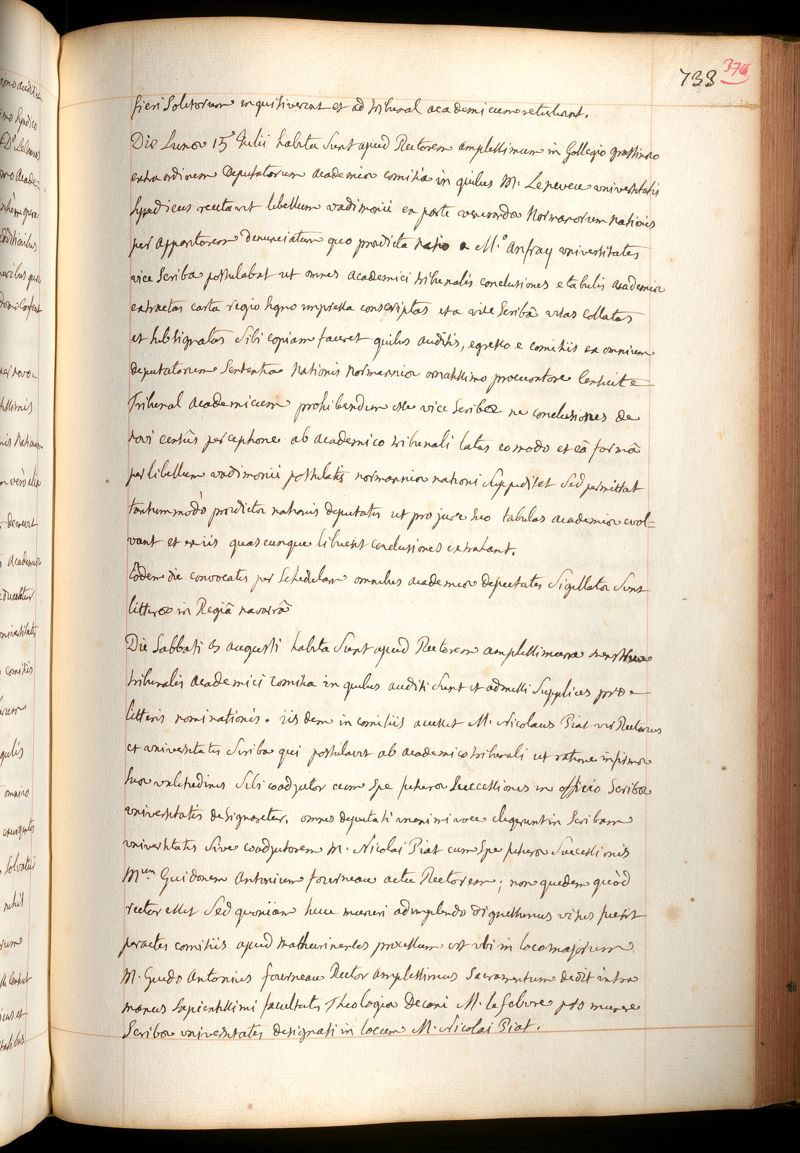 733 376
fieri solitorum inquisiverent et ad tribunal academicum referrant.
Die Lunæ 15ª Julii habita sunt apud Rectorem amplissimum in Collegio Grassinæo
extraordinem deputatorum academiæ comitia in quibus M. Leneveu universitatis
syndicus recitavit libellum vadimonii ex parte venerandæ Normanorum nationis
per apparitorem denunciatum quo prædicta natio a M.º Anfray universitatis
vice scriba postulabat ut omnes academici tribunalis conclusiones e tabulis academiæ
extractas carta regio signo impressa conscriptas et a vice scribâ visas collatas
et subsignatas sibi copiam faceret quibus auditis, egresso e comitiis ex omnium
deputatorum sententia nationis normanniæ ornatissimo procuratore censuit
Tribunal academicum prohibendum esse vice scribæ ne conclusiones de
novi censûs perceptione ab academico tribunali latas eo modo et eâ formâ
per libellum vadimonii postulatis normanniæ nationi suppeditet sed permittat
tantummodò prædictæ nationis deputatis ut pro jure suo tabulas academiæ evol=
vant et ex iis quascunque libuerit conclusiones extrahant.
Eôdem die convocatis per schedulam omnibus academiæ deputatis sigillatæ sunt
litteræ in Regiâ navarrâ
Die Sabbati 3 augusti habita sunt apud Rectorem amplissimum menstrua
tribunalis academici comitia in quibus auditi sunt et admissi supplices pro
litteris nominationis. iisdem in comitiis accessit M. Nicolaus Piat vir Rectorius
et universitatis scriba qui postulavit ab academico tribunali ut ratione infirmæ
suæ valetudinis sibi coadjutor cum spe futuræ successionis in officio scribæ
universitatis designaretur. omnes deputati unanimi voce elegerunt in scribam
universitatis sive coadjutorem M. Nicolai Piat cum spe futuræ successionis
Mum Guidonem Antonium fourneau actu Rectorem; non quidem quòd
rector esset sed quoniam huic muneri adimplendo dignissimus visus fuerit
peractis comitiis apud mathurinenses processum est ubi in loco majorum
M. Guido Antonius fourneau Rector amplissimus sacramentum dedit intra
manus sapientissimi facultatis Theologiæ decani M. lefebvre pro munere
scribæ universitatis designati in locum M. Nicolai Piat.